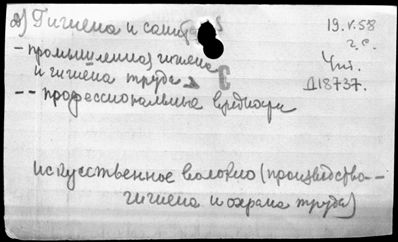 2) Гигиена и санит
19.V.58
г.с.
- промышленная гигиена
и гигиена труда
Чит.
Д18737.
-- профессиональные вредности
искусственное волокно (производство-
гигиена и охрана труда)